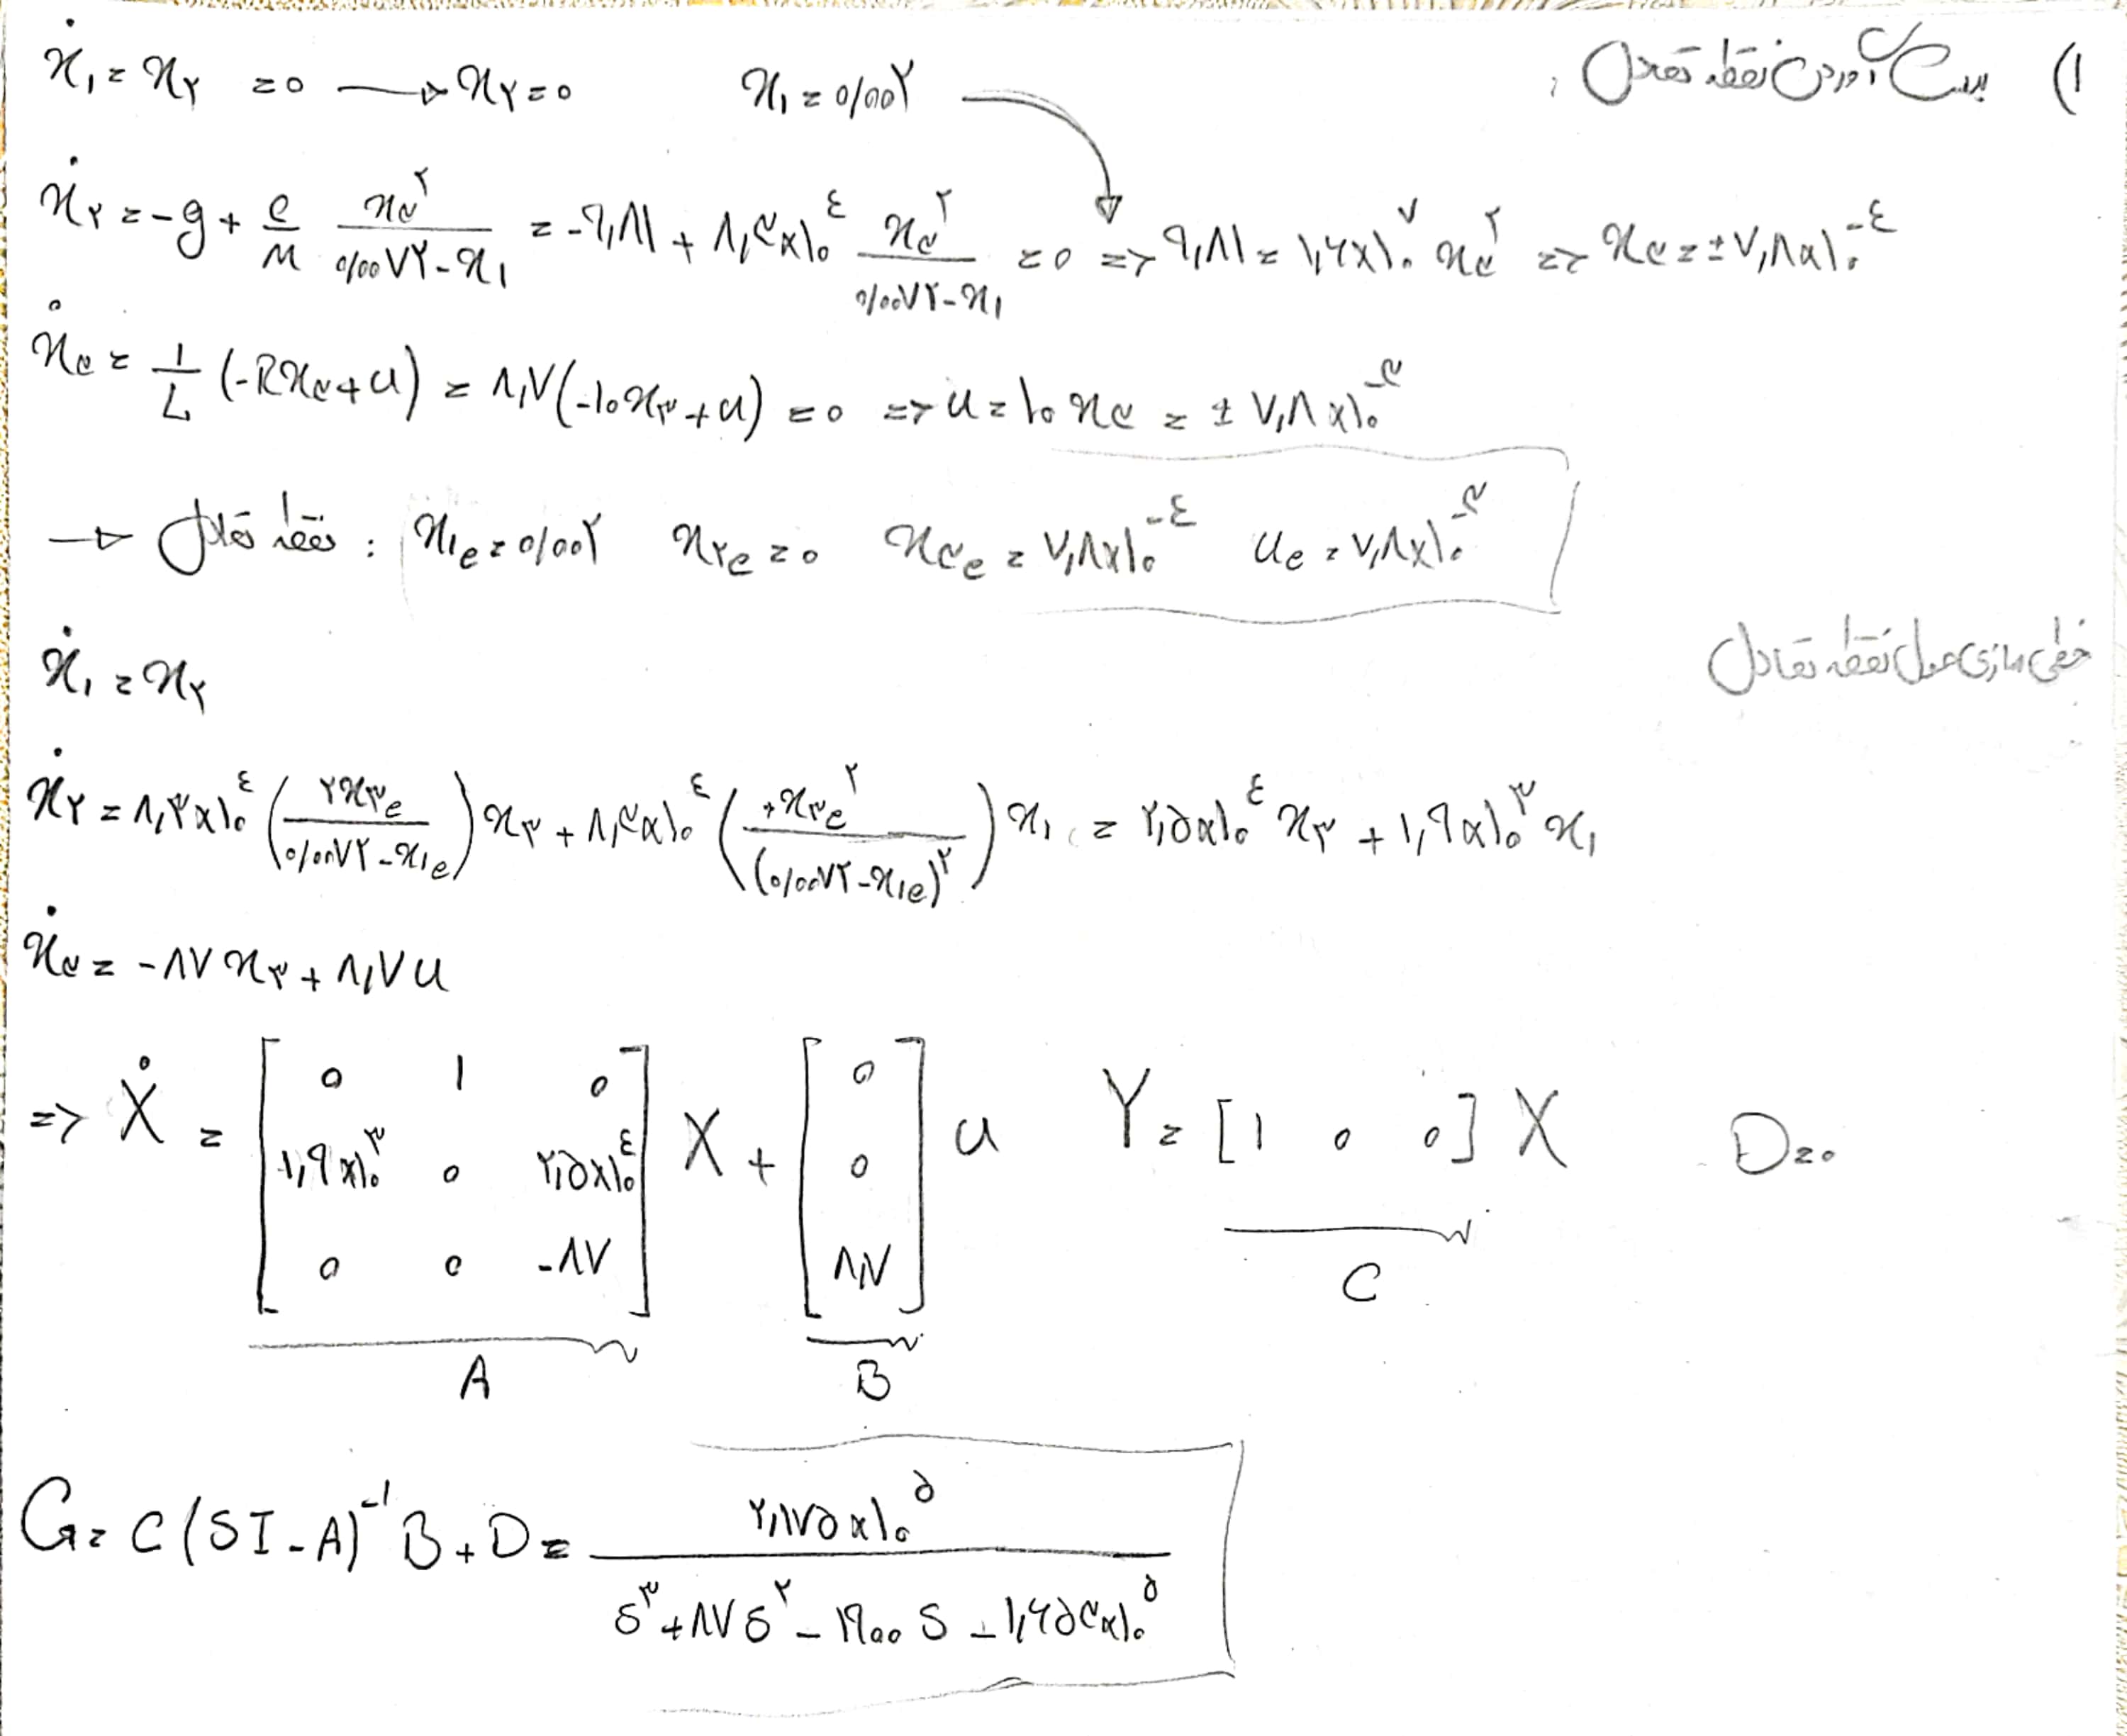 ۱) بدست آوردن نقطه تعادل :
ẋ₁ = x₂ = 0 → x₂ = 0    x₁ = ۰/۰۰۲
ẋ₂ = -g + C/M x₃²/(۰/۰۰۷۲ - x₁) = -۹,۸۱ + ۸,۳×۱۰^۴ x₃²/(۰/۰۰۷۲ - x₁) = ۰ => ۹,۸۱ = ۱,۶×۱۰^۷ x₃² => x₃ = ±۷,۸×۱۰^-۴
ẋ₃ = 1/L (-Rx₃ + u) = ۸,۷(-۱۰x₃ + u) = ۰ => u = ۱۰x₃ = ±۷,۸×۱۰^-۳
→ نقطه تعادل : x₁e = ۰/۰۰۲   x₂e = ۰   x₃e = ۷,۸×۱۰^-۴   ue = ۷,۸×۱۰^-۳
خطی سازی حول نقطه تعادل
ẋ₁ = x₂
ẋ₂ = ۸,۳×۱۰^۴ (۲x₃e/(۰/۰۰۷۲ - x₁e)) x₃ + ۸,۳×۱۰^۴ (+x₃e²/(۰/۰۰۷۲ - x₁e)²) x₁ = ۲,۵×۱۰^۴ x₃ + ۱,۹×۱۰^۳ x₁
ẋ₃ = -۸۷x₃ + ۸,۷u
=> Ẋ = [۰ ۱ ۰ ; ۱,۹×۱۰^۳ ۰ ۲,۵×۱۰^۴ ; ۰ ۰ -۸۷] X + [۰ ; ۰ ; ۸,۷] u   Y = [۱ ۰ ۰] X   D = ۰
A   B   C
G = C(SI - A)^-1 B + D = ۲,۱۷۵×۱۰^۵ / (S^۳ + ۸۷S^۲ - ۱۹۰۰S - ۱,۶۵۳×۱۰^۵)